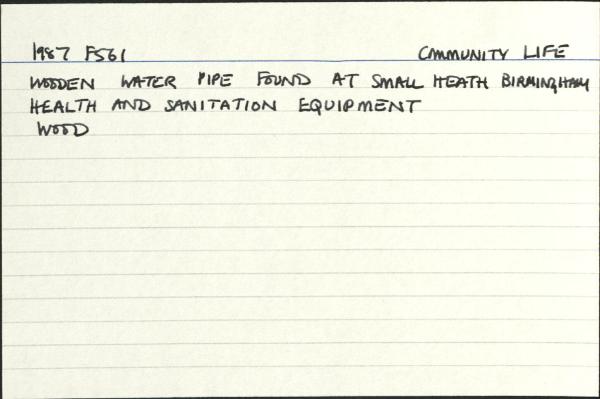 1987 F561 COMMUNITY LIFE
WOODEN WATER PIPE FOUND AT SMALL HEATH BIRMINGHAM
HEALTH AND SANITATION EQUIPMENT
WOOD